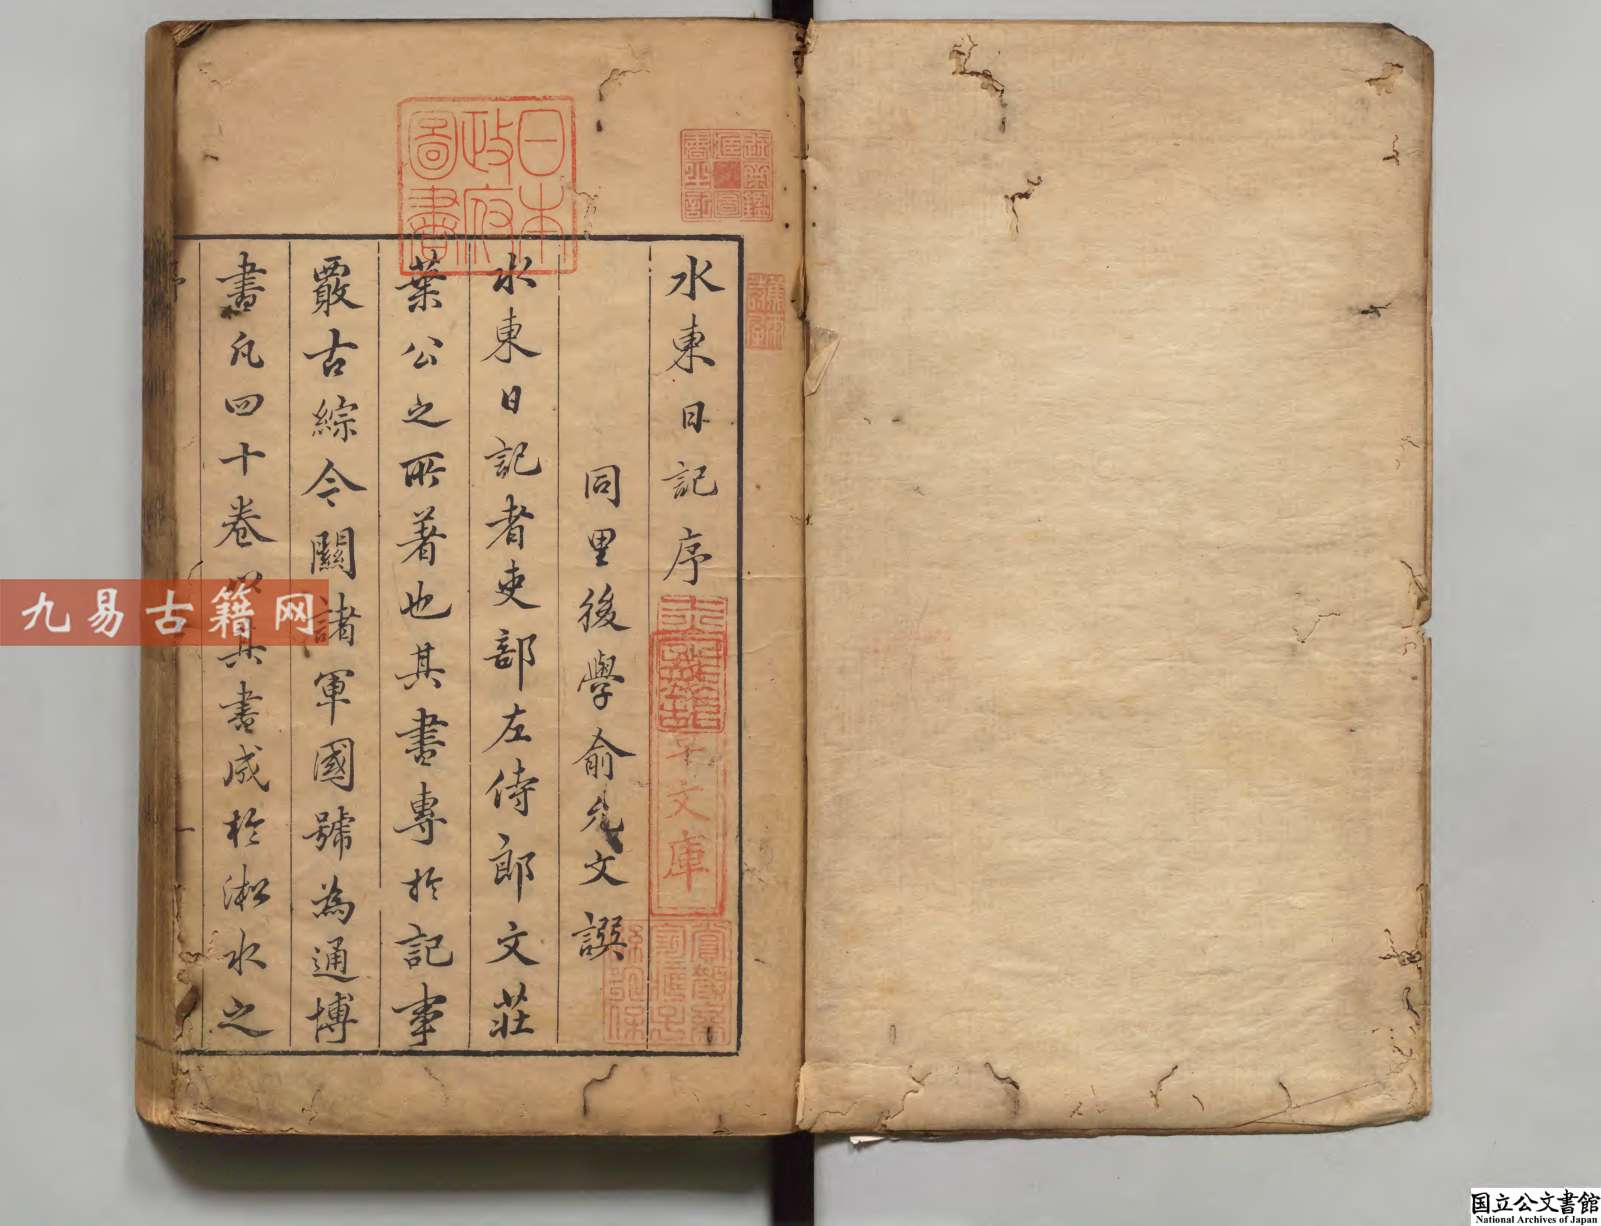 水東日記序
同里後學俞允文譔
水東日記者吏部左侍郎文莊
葉公之所著也其書專於記事
覈古綜今關諸軍國號為通博
書凡四十卷以其書成於淞水之
日本政府圖書
文庫
九易古籍网
国立公文書館
National Archives of Japan